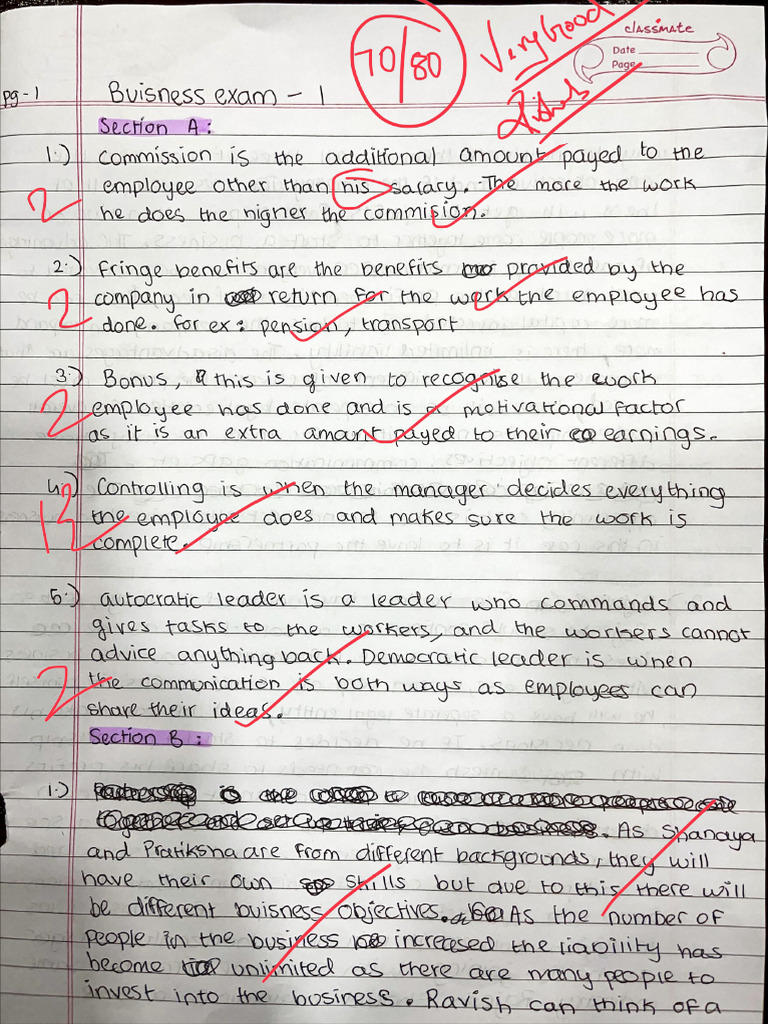 70/80
Very Good
classmate
Date
Page
pg-1
Buisness exam - 1
Section A:
1.) commission is the additional amount payed to the
employee other than his salary. The more the work
2
he does the higher the commision.
2.) Fringe benefits are the benefits provided by the
2
company in return for the work the employee has
done. for ex: pension, transport
3.) Bonus, this is given to recognise the work
2
employee has done and is a motivational factor
as it is an extra amant payed to their earnings.
4.) Controlling is when the manager decides everything
the employee does and makes sure the work is
complete.
5.) autocratic leader is a leader who commands and
gives tasks to the workers, and the workers cannot
advice anything back. Democratic leader is when
2
the communication is both ways as employees can
share their ideas.
Section B:
1.) As Shanaya
and Pratiksha are from different backgrounds, they will
have their own skills but due to this there will
be different buisness objectives. As the number of
people in the business increased the liability has
become unlimited as there are many people to
invest into the business. Ravish can think of a